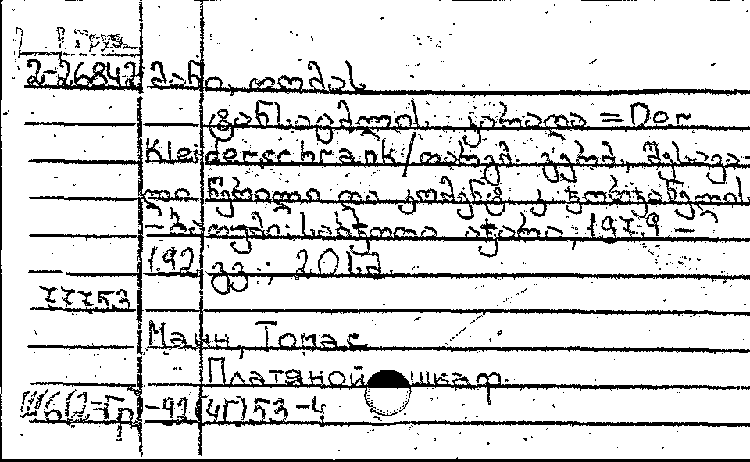 Груз
2-26842 მანი, თომას
ტანსაცმლის კარადა = Der
Kleiderschrank/თარგმ. გერმ., შესავა-
ლი წერილი და კომენტ. კ. ჯორჯანელის.
-ბათუმი: საბჭოთა აჭარა, 1979 -
192 გვ.; 20სმ
77753
Манн, Томас
Платяной шкаф.
Ш6(2=Гр)-42(4Г)53-4